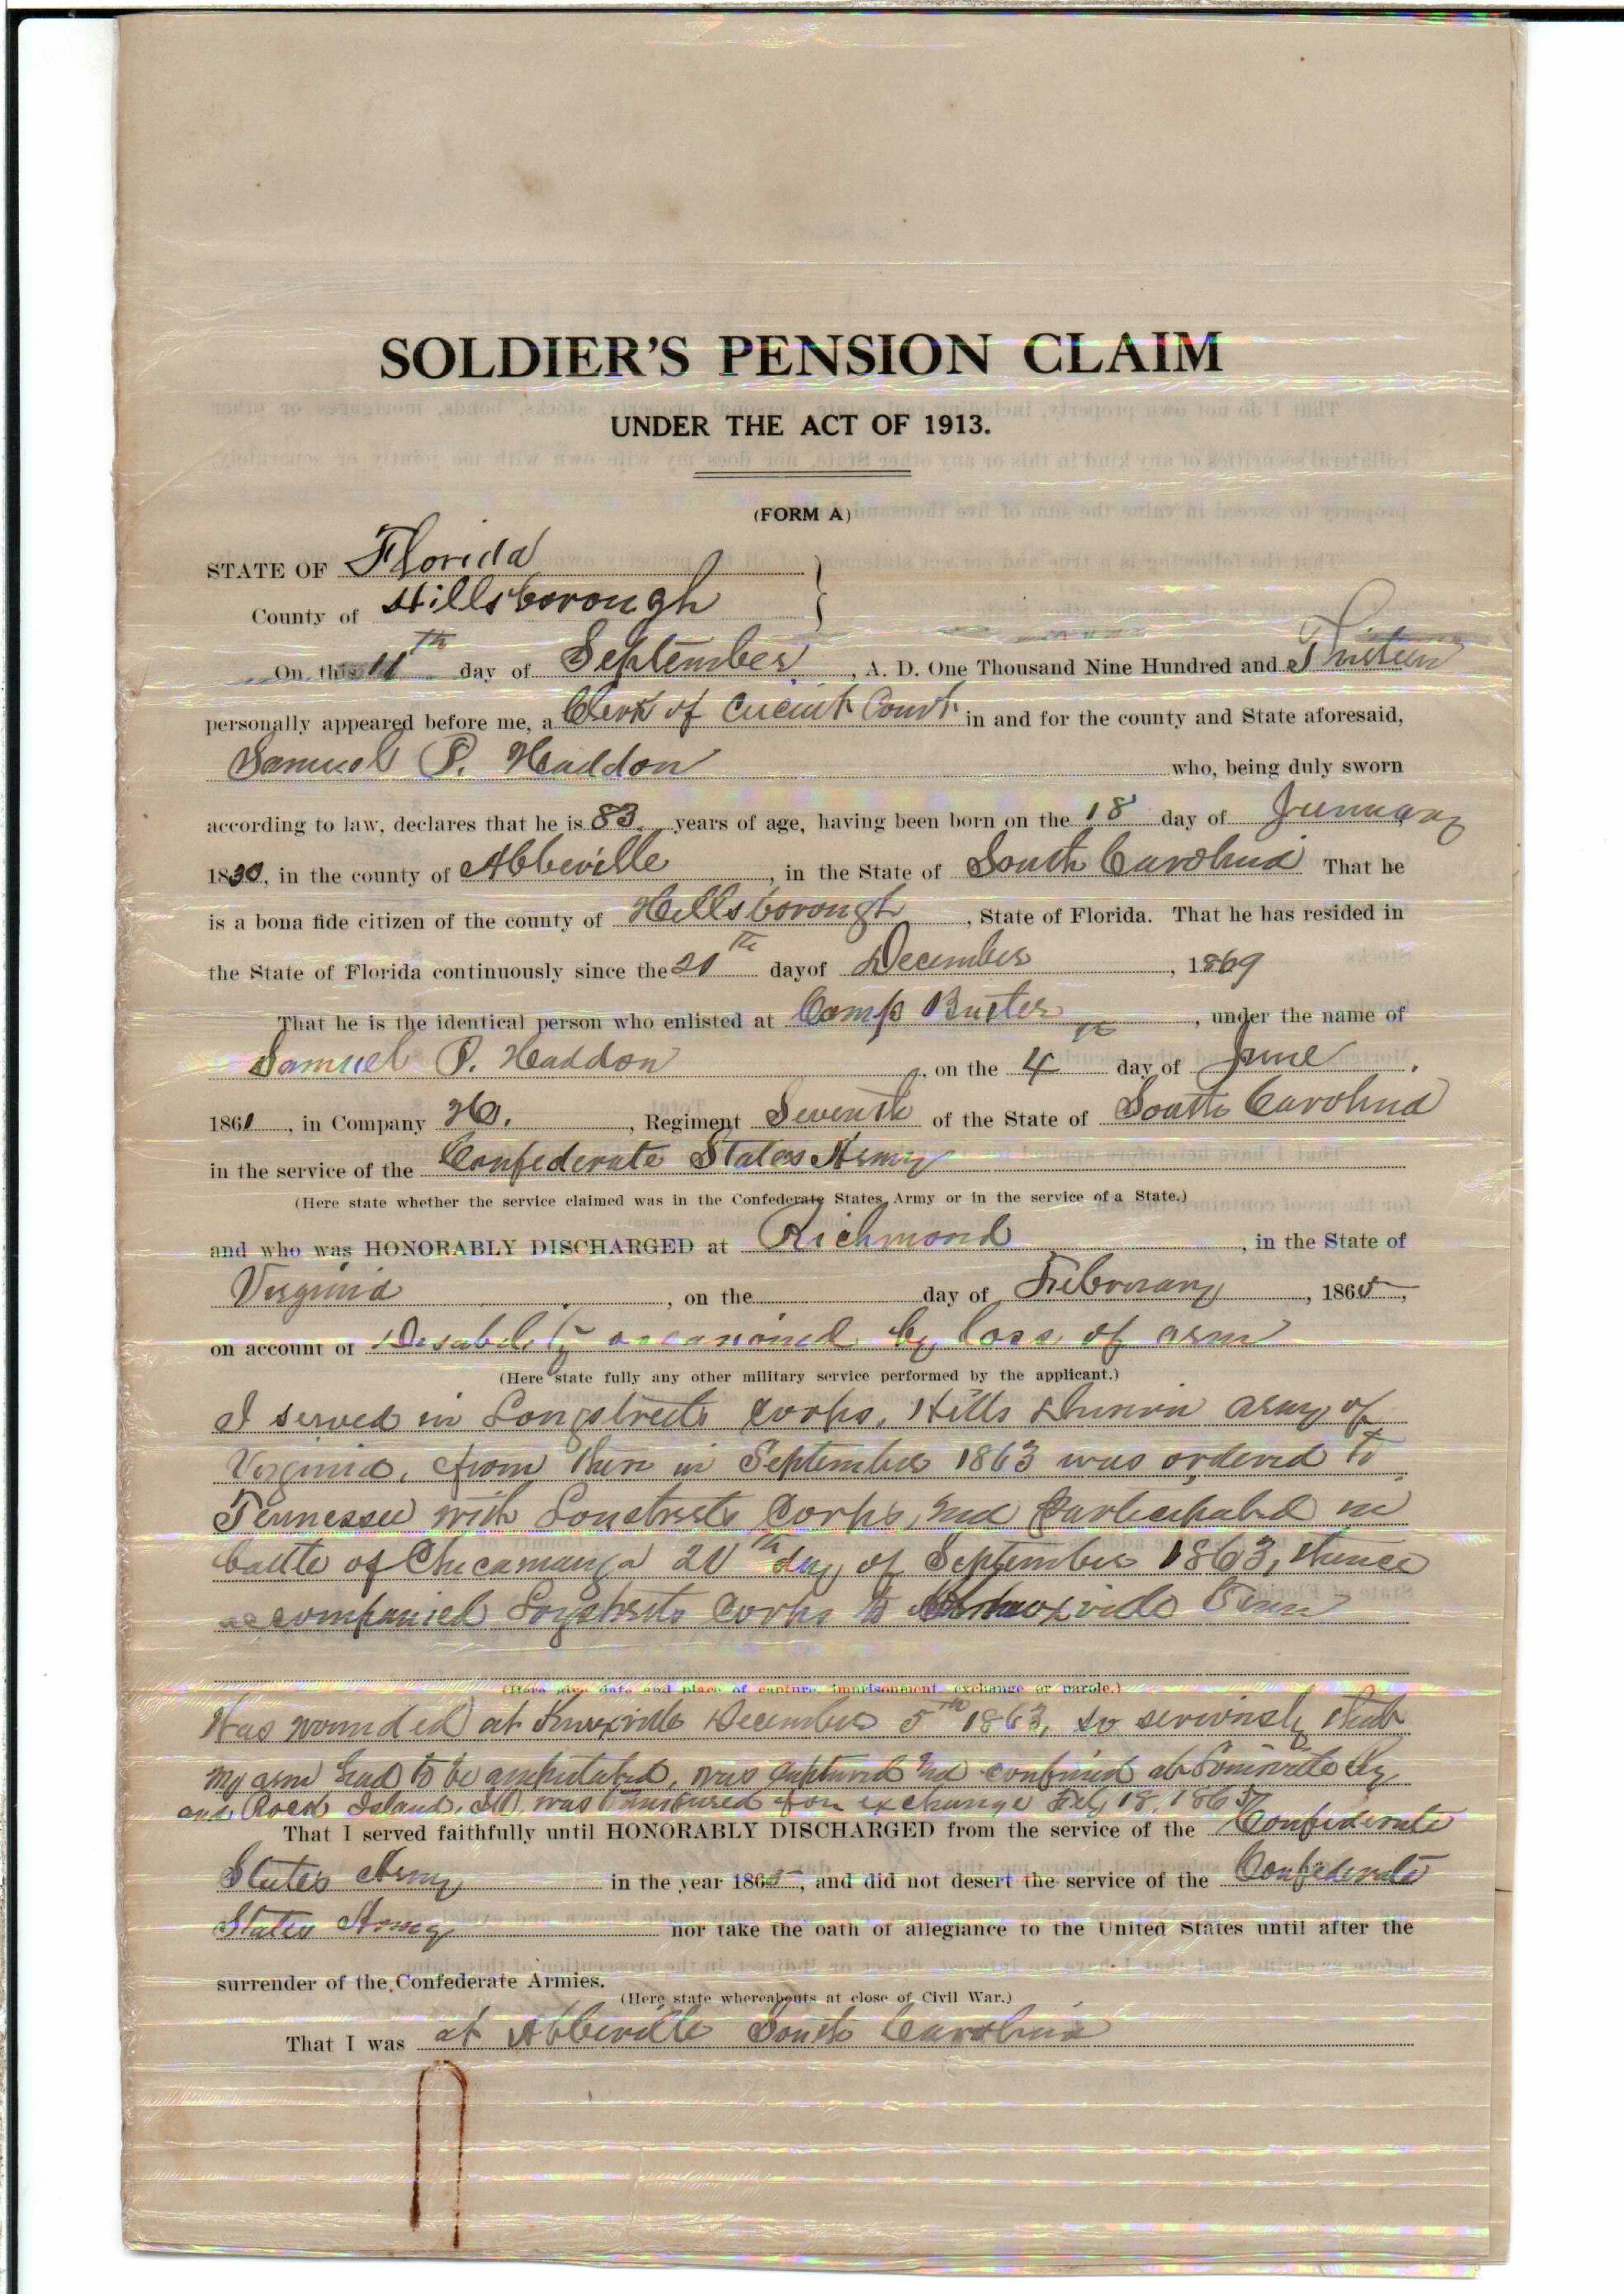 SOLDIER'S PENSION CLAIM
UNDER THE ACT OF 1913.
(FORM A)
STATE OF Florida
County of Hillsborough
On this 11th day of September, A. D. One Thousand Nine Hundred and Thirteen
personally appeared before me, a Clerk of Circuit Court in and for the county and State aforesaid,
Samuel P. Haddon who, being duly sworn
according to law, declares that he is 83 years of age, having been born on the 18 day of January
1830, in the county of Abbeville, in the State of South Carolina That he
is a bona fide citizen of the county of Hillsborough, State of Florida. That he has resided in
the State of Florida continuously since the 20th day of December, 1869
That he is the identical person who enlisted at Camp Butler, under the name of
Samuel P. Haddon, on the 4th day of June,
1861, in Company H., Regiment Seventh of the State of South Carolina
in the service of the Confederate States Army
(Here state whether the service claimed was in the Confederate States Army or in the service of a State.)
and who was HONORABLY DISCHARGED at Richmond, in the State of
Virginia, on the day of February, 1865,
on account of Disability occasioned by loss of arm
(Here state fully any other military service performed by the applicant.)
I served in Longstreets Corps, Hills Division army of
Virginia. from there in September 1863 was ordered to
Tennessee with Lonstreets Corps, and participated in
battle of Chicamauga 20th day of September 1863, thence
accompanied Logstreets Corps to Knoxville Tenn
(Here give date and place of capture, imprisonment, exchange or parole.)
Was wounded at Knoxville December 5th 1863, so seriously that
my arm had to be amputated, was captured and confined at Louisville Ky
and Rock Island, Ill, was for exchange Feb, 18, 1865
That I served faithfully until HONORABLY DISCHARGED from the service of the Confederate
States Army in the year 1865, and did not desert the service of the Confederate
States Army nor take the oath of allegiance to the United States until after the
surrender of the Confederate Armies.
(Here state whereabouts at close of Civil War.)
That I was at Abbeville South Carolina